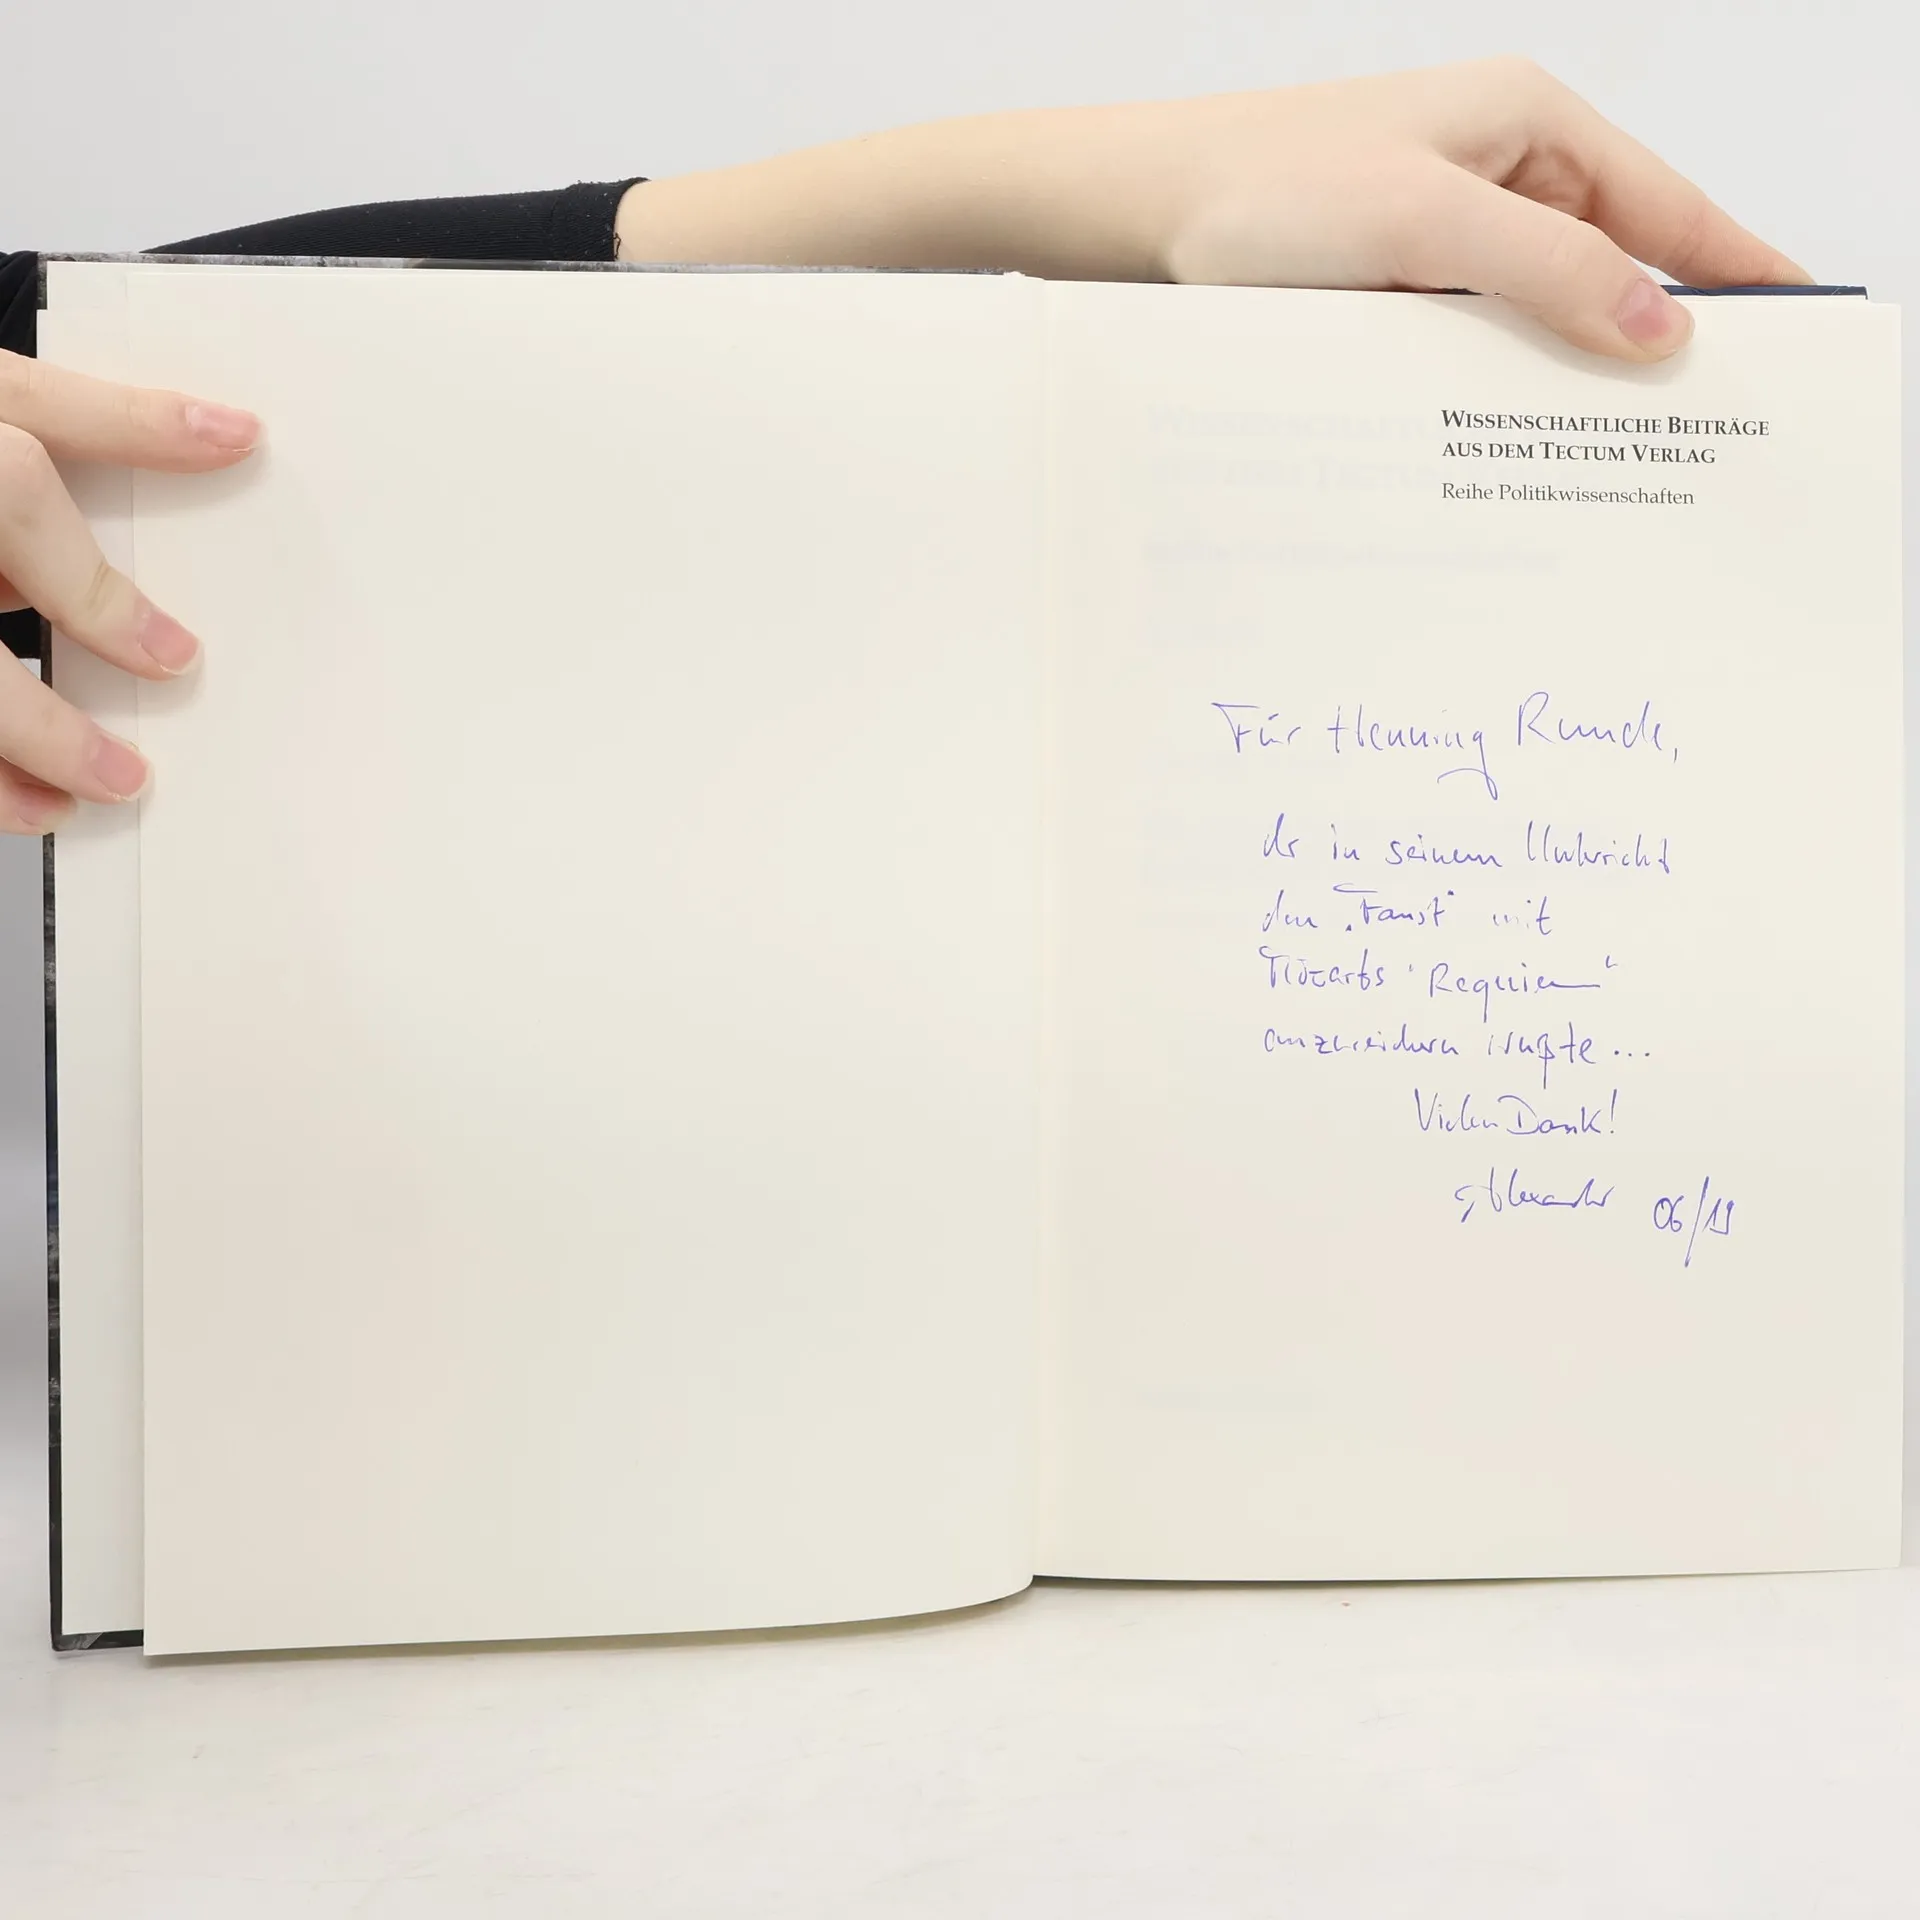 WISSENSCHAFTLICHE BEITRÄGE
AUS DEM TECTUM VERLAG
Reihe Politikwissenschaften
Für Henning Runde,
der in seinem Unterricht
den „Faust" mit
Mozarts "Requiem"
anzureichern wußte...
Vielen Dank!
Alexander 06/19